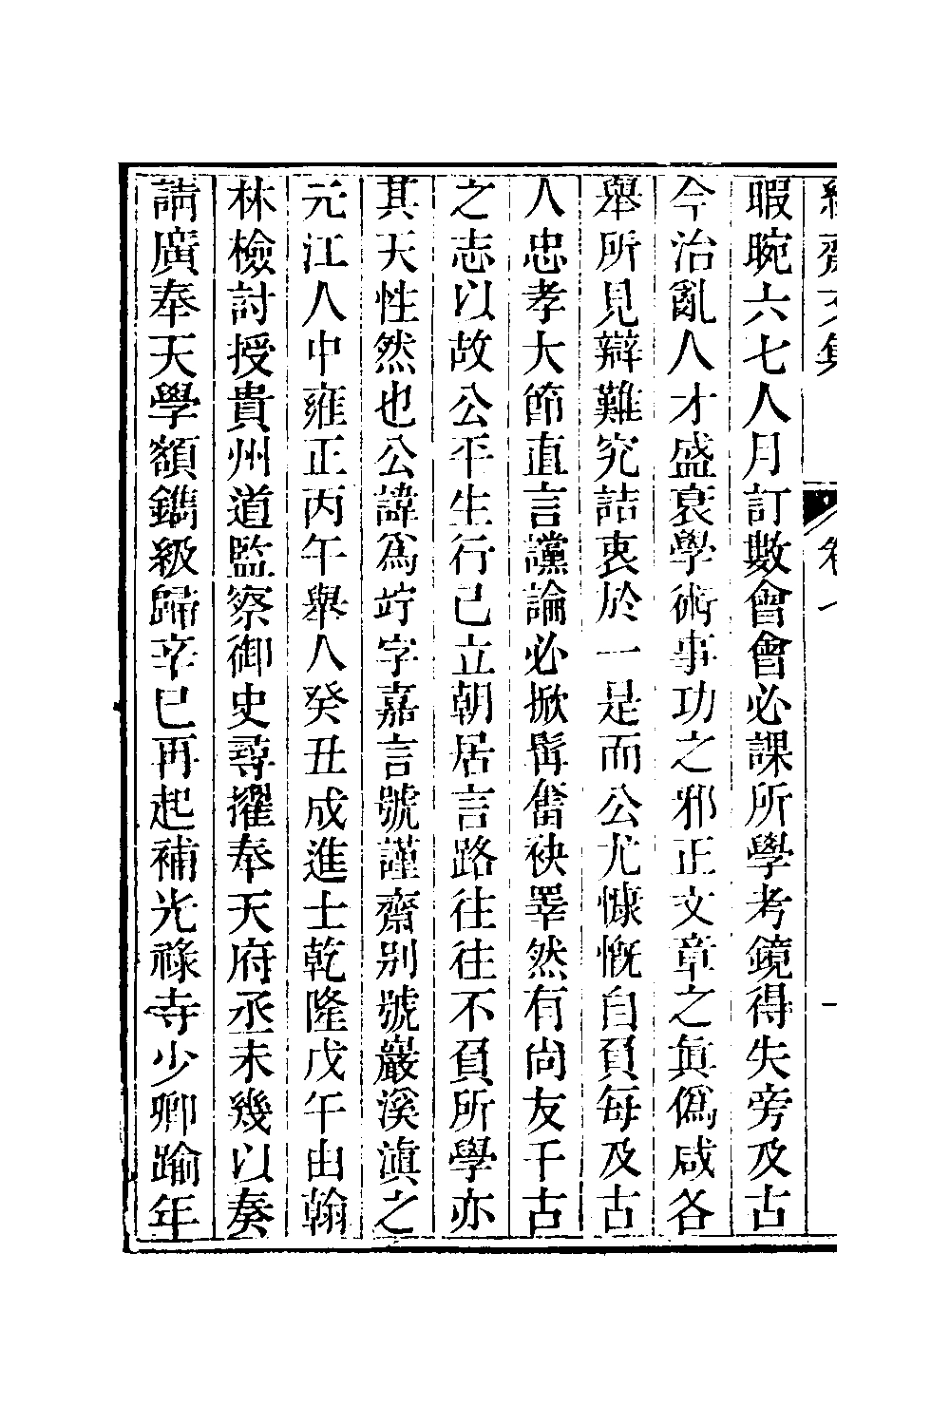 暇晼六七人月訂數會會必課所學考鏡得失旁及古
今治亂人才盛衰學術事功之邪正文章之眞僞咸各
舉所見辯難究詰衷於一是而公尤慷慨自負每及古
人忠孝大節直言讜論必掀髯奮袂睪然有尚友千古
之志以故公平生行己立朝居言路往往不負所學亦
其天性然也公諱爲𥩟字嘉言號謹齋别號巖溪滇之
元江人中雍正丙午舉人癸丑成進士乾隆戊午由翰
林檢討授貴州道監察御史尋擢奉天府丞未幾以奏
請廣奉天學額鐫級歸辛巳再起補光祿寺少卿踰年